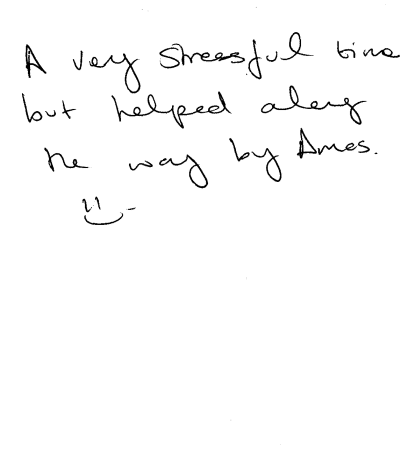 A very stressful time
but helped along
the way by Ames.